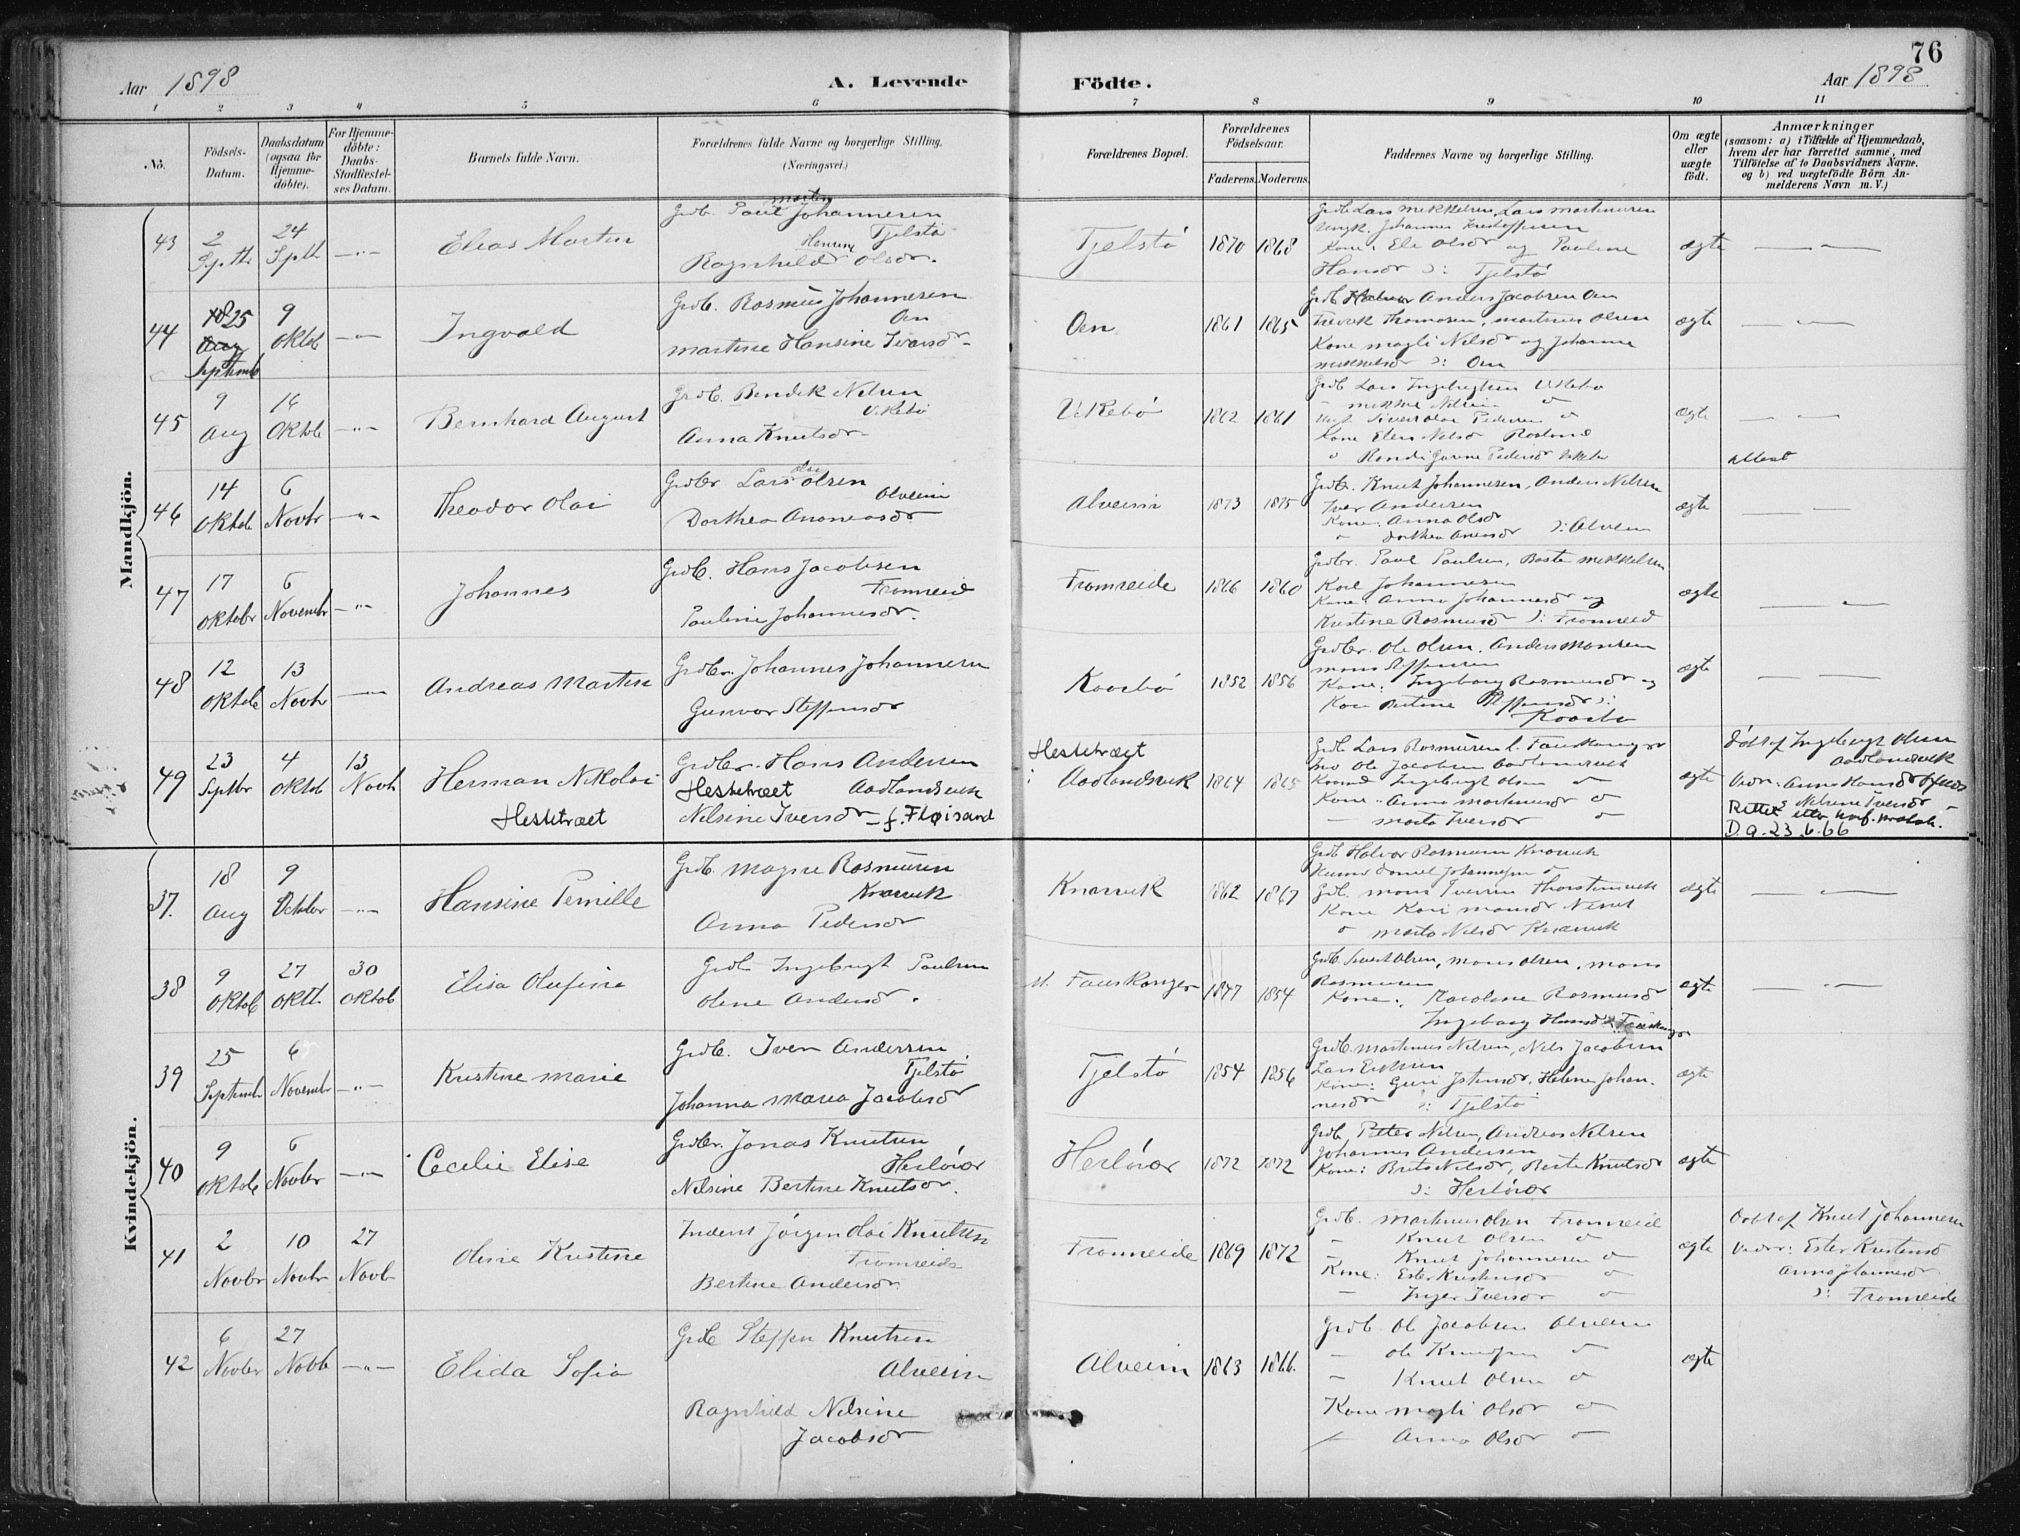 76
Aar 1898
A. Levende
Födte.
Aar 1898
1 2 3 4 5 6 7 8 9 10 11
No.
Födsels-
Datum.
Daabsdatum
(ogsaa for
Hjemme-
döbte).
For Hjemme-
döbte:
Daabs-
Stadfæstel-
ses Datum.
Barnets fulde Navn.
Forældrenes fulde Navne og borgerlige Stilling.
(Næringsvei.)
Forældrenes Bopæl.
Forældrenes
Födselsaar.
Faderens. Moderens.
Faddernes Navne og borgerlige Stilling.
Om ægte
eller
uægte
födt.
Anmærkninger
(saasom: a) i Tilfælde af Hjemmedaab,
hvem der har forrettet samme, med
Tilföielse af to Daabsvidners Navne.
og b) ved uægtefödte Börn An-
melderens Navn m. V.)
Mandkjön.
43
2
Septbr
24
Septb
Elias Martin
Grdb. Paul Johannesen
Tjelstö
Ragnhild Olsdr.
Tjelstö
1870 1868
Grdb Lars Mikkelsen, Lars Martinusen
Ungk. Johannes Kristoffersen
Kone: Eli Olsdr og Pauline
Hansdr : Tjelstö
ægte
44
25
Septemb
9
Oktob
Ingvald
Grdb. Rasmus Johannesen
Oen
Martine Hansine Iversdr
Oen
1861 1865
Grdb Anders Jacobsen Oen
Fredrik Thomasen, Martinus Olsen
Kone Magli Nilsdr og Johanna
Mikkelsdr : Oen
ægte
45
9
Aug
16
Oktob
Bernhard August
Grdb. Bendik Nilsen
Vikebö
Anna Knutsdr
Vikebö
1862 1861
Grdb Lars Ingebrigtsen Vikebö
Mikkel Nilsen
Kone Elen Nilsd Rosland
ægte
Attest
46
14
Oktob
6
Novbr
Theodor Olai
Grdbr Lars Olsen
Alveim
Dorthea Ananiasdr
Alveim
1873 1875
Grdbr. Knut Johannesen, Anders Nilsen
Iver Andersen
Kone: Anna Olsdr
: Alveim
ægte
47
17
Oktobr
6
Novembr
Johannes
Grdb. Hans Jacobsen
Fromreid
Pauline Johannesdr.
Fromreide
1866 1860
Grdbr. Paul Paulsen, Baste Mikkelsen
Karl Johannesen
Kone: Anna Johannesdr og
Kristine Rasmusdr : Fromreid
ægte
48
12
Oktob
13
Novbr
Andreas Martin
Grdbr. Johannes Johannesen
Gunvor Steffensdr
Kaarbö
1852 1856
Grdbr. Ole Olsen. Anders Monsen
Mons Steffensen
Kone: Ingeborg Rasmusdr og
Kari Bertine Steffensdr :
ægte
49
23
Septbr
4
Oktob
13
Novb
Herman Nikolai
Hestetræet
Grdbr. Hans Andersen
Hestetræet Aadlandsvik
Nilsine Iversdr - f. Fløisand
Hestetræet
i Aadlandsvik
1864 1865
Grdb Lars Rasmusen L. Fauskanger
Ole Jacobsen Aadlandsvik
Ingebrigt Olsen
Kone: Anna Martinusdr
Marta Iversdr
ægte
Döbt af Ingebrigt Olsen
Aadlandsvik
Vidn: Anna Hansdr
Nilsine Iversdr
Rettet etter
D.a. 23.6.66
Kvindekjön.
37.
18
Aug
9
Oktbr
Hansine Pernille
Grdb. Magne Rasmusen
Knarvik
Anna Pedersdr
Knarvik
1862 1867
Grdb Halvor Rasmusen Knarvik
Daniel Johannesen
Grdb. Mons Iversen Thorsteinsvik
Kone Kari Monsdr
Marta Nilsdr Knarvik
ægte
38
9
Oktob
27
Oktb
30
Oktob
Elisa Olufine
Grdb Ingebrigt Paulsen
Oline Andersdr.
M. Fauskanger
1847 1854
Grdb Sivert Olsen, Mons Olsen, Mons
Rasmusen
Kone: Karoline Rasmusdr
Ingeborg Hansdr Fauskanger
ægte
39
25
Septemb
6
Novembr
Kristine Marie
Grdb. Iver Andersen
Tjelstö
Johanna Maria Jacobsdr
Tjelstö
1854 1856
Grdb. Martinus Nilsen, Nils Jacobsen
Lars Eriksen
Kone: Guri Johannesdr, Helene Johan-
nesdr : Tjelstö
ægte
40
9
Oktob
6
Novbr
Cecilie Elise
Grdbr. Jonas Knutsen
Herlövær
Nilsine Bertine Knutsdr.
Herlövær
1872 1872
Grdb. Petter Nilsen, Andreas Nilsen
Johannes Andersen
Kone: Brita Nilsdr, Berte Knutsdr
: Herlövær
ægte
41
2
Novbr
10
Novbr
27
Novb
Oline Kristine
Inderst Jörgen Olai Knutsen
Fromreide
Bertine Andersdr
Fromreide
1869 1872
Grdb. Martinus Olsen Fromreide
Knut Olsen
Knut Johannesen
Kone: Ester Kristensdr
Inger Iversdr
ægte
Döbt af Knut Johannesen
Vidn: Ester Kristensd
Anna Johannesdr
: Fromreide
42
6
Novbr
27
Novb
Elida Sofia
Grdb Steffen Knutsen
Alveim
Ragnhild Nilsine
Jacobsdr
Alveim
1863 1866.
Grdb. Ole Jacobsen Alveim
Ole Knudsen
Knut Olsen
Kone Magli Olsdr
Anna Olsdr
ægte